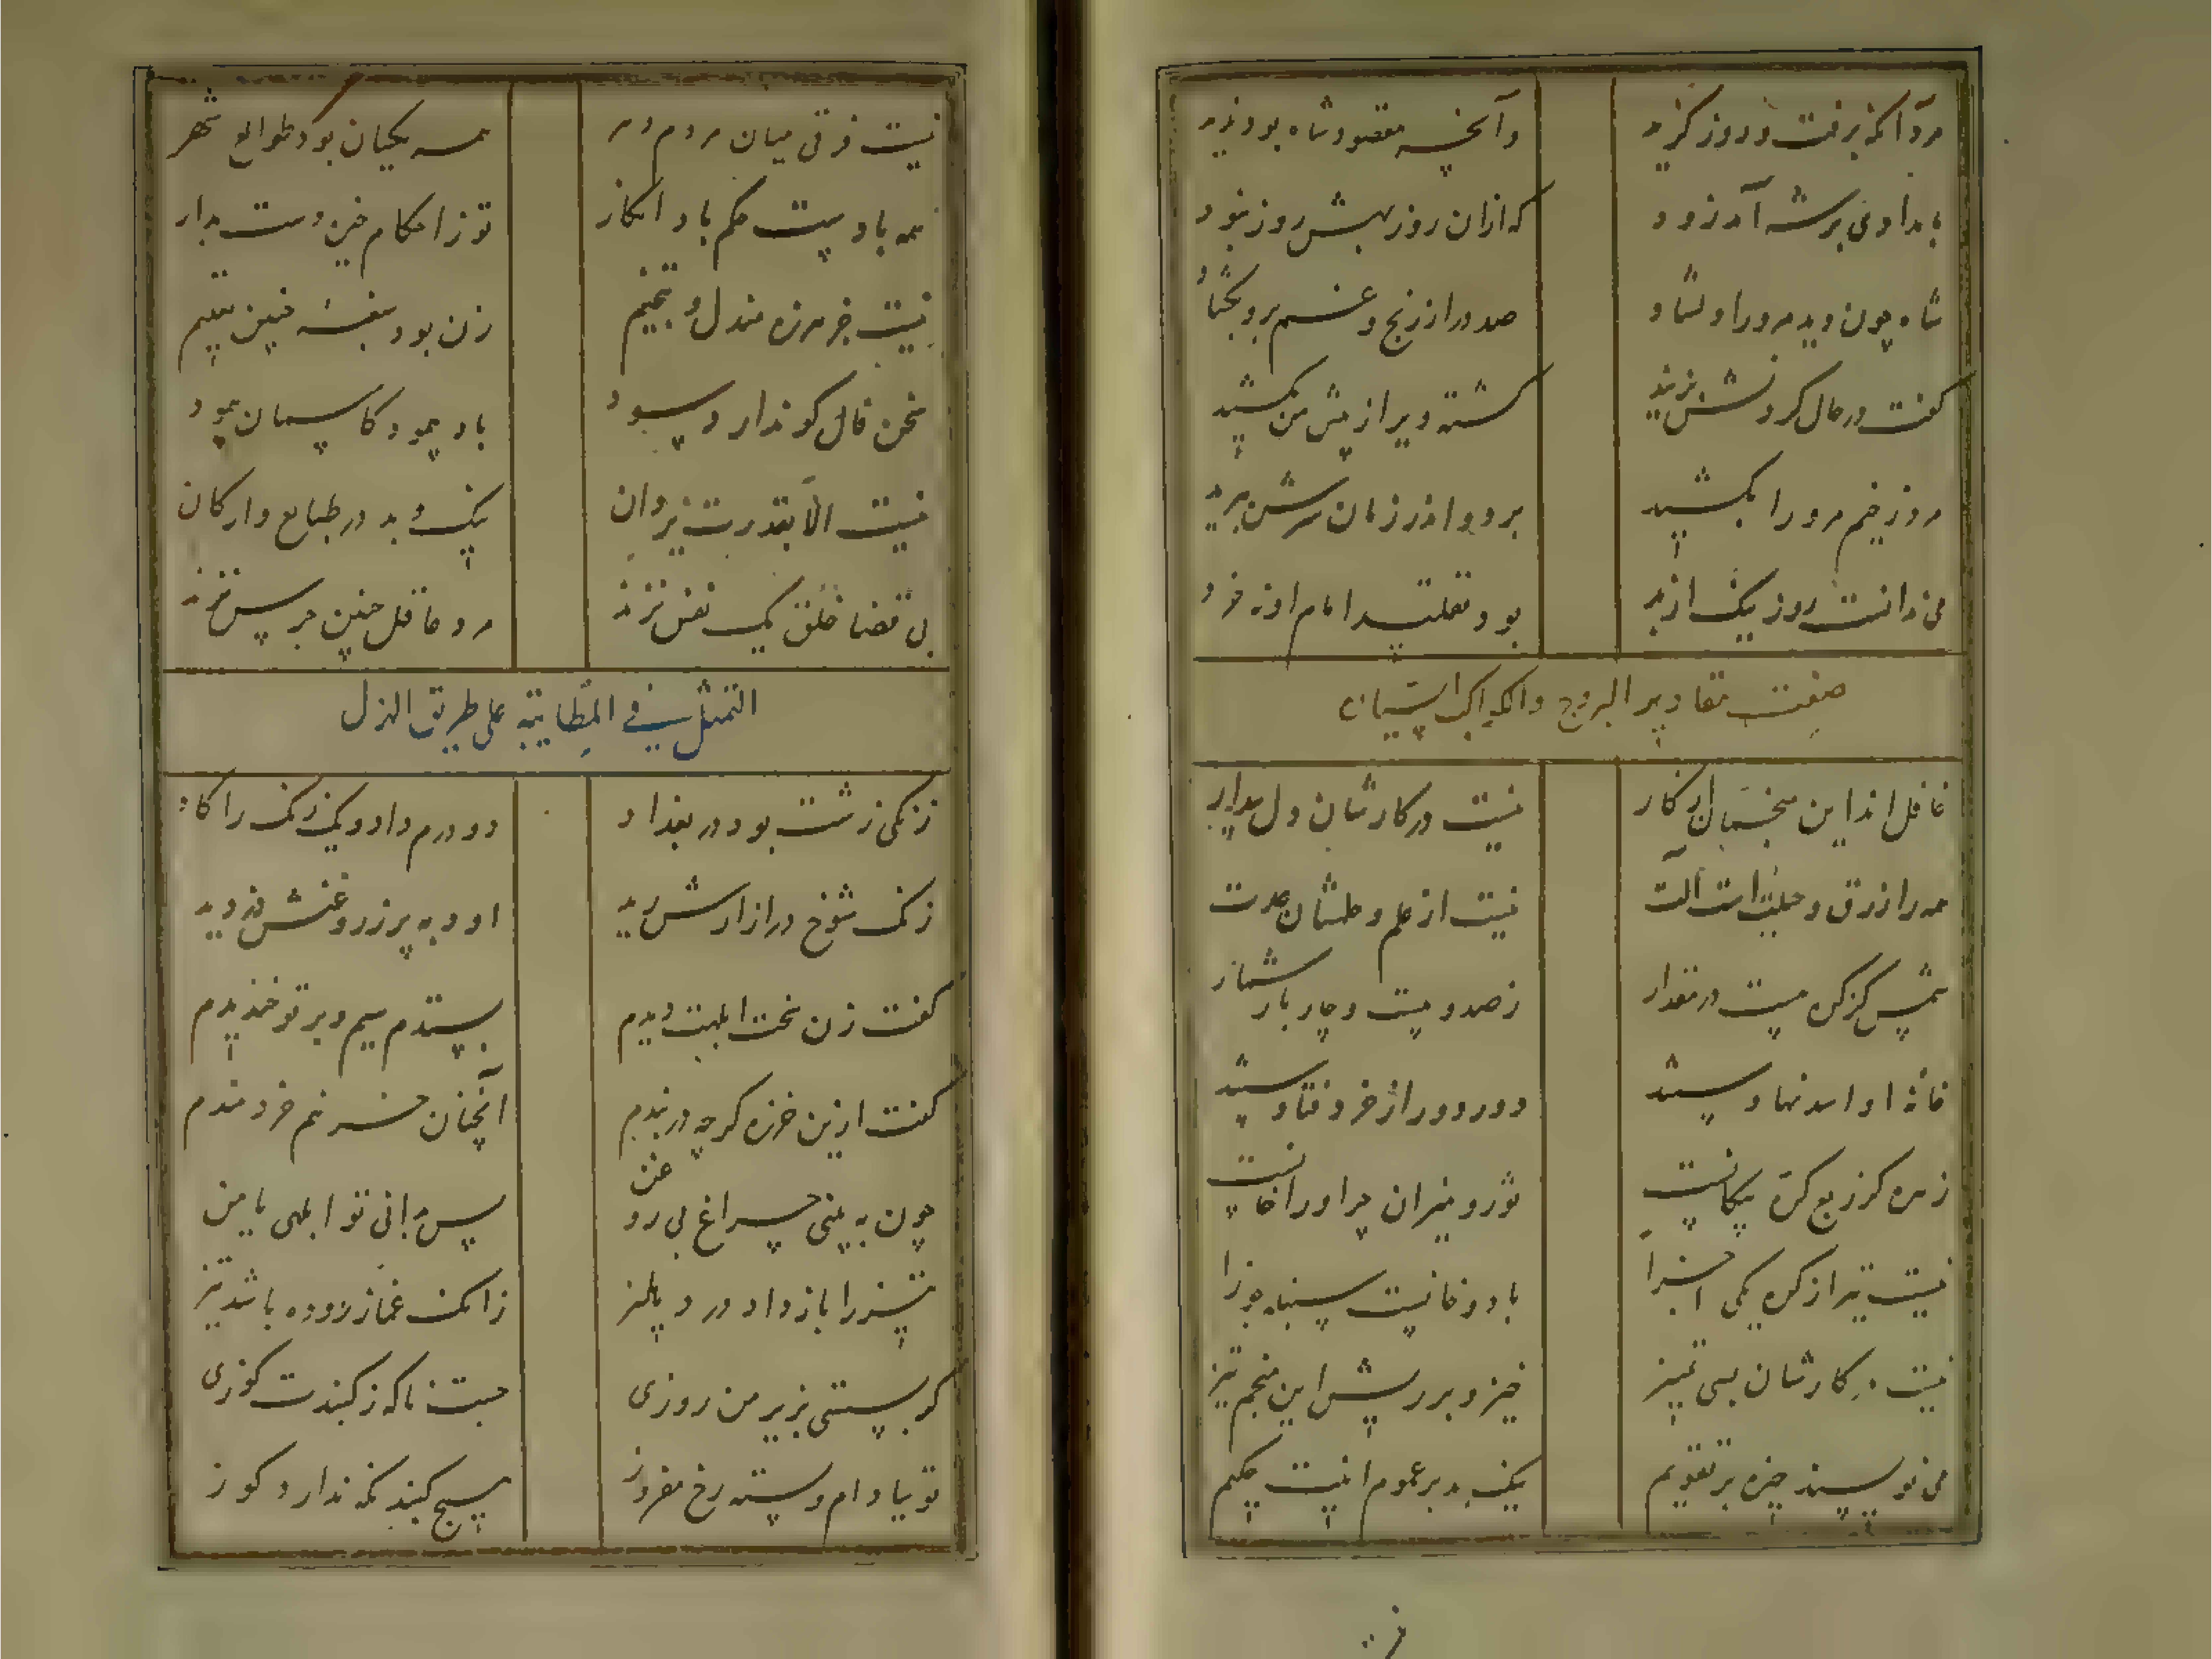 مرد آنکه برفت و روز گزید وآنچه مقصود شاه بود بدید
بامدادی برشه آمد زود که ازان روز بهتر روز نبود
شاه چون دید مرورا دلشاد صد در از رنج و غم برو بگشاد
گفت در حال گردنش بزنید کشته ویرا ز پیش من بکشید
روزخیم مرورا بکشید برد و اندر زمان سرش ببرید
می ندانست روز نیک از بد بود تقلید امام او نه خرد
صفت مقادیر البروج والکواکب ایشان
غافل اند این منجمان از کار نیست در کارشان دل بیدار
همه را زرق و حیلت است آلت نیست از علم و حلمشان حالت
شمس کز کره هست در مقدار ز صد و بیست و چار بار شمار
خانهٔ او اسد نهاد ستند دور دور از خرد فتادستند
زهره کز ربع کره یکتا نیست ثور و میزان چرا ورا خانیست
نیست تیر از کره یکی اجزا با دو خانه‌ست سنبله جوزا
نیست در کارشان بسی تمییز خیز و بر ریش این منجم تیز
می نویسند خیره بر تقویم نیک و بد بر عموم اینت حکیم
نیست فرقی میان مردم در همه یکسان بود طوالع شهر
همه بادست حکم باد انگار تو ز احکام خیره دست بدار
نیست جز هرزه مندل و تنجیم زن بود سغبهٔ چنین تعلیم
سخن فال گو ندارد سود باد پیمود کاسمان پیمود
نیست الا بقدرت یزدان نیک و بد در طبایع و ارکان
بی قضا خلق یک نفس نزند مرد عاقل چنین جرس نزند
التمثیل فی المطایبة علی طریق الهزل
زنگی زشت بود در بغداد دو درم داد و یک زنک را گاد
زنک شوخ در ازارش رید او دبه پر ز روغنش دزدید
گفت زن سخت ابلهت دیدم بستدم سیم و بر تو خندیدم
گفت ازین خرزه گرچه در بندم آنچنان خر نیم خردمندم
چون به بینی چراغ بی روغن پس بدانی تو ابلهی یا من
تیز را باز داد در دهلیز زانکه غماز روده باشد تیز
گر بستی بزیر من روزی جست ناگه ز گنبدت گوزی
تو بیا دام و سته رخ مفروز هیچ گنبد نگه ندارد گوز